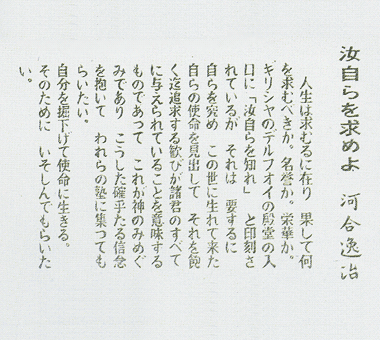 汝自らを求めよ　河合逸治
人生は求むるに在り　果して何
を求むべきか。名誉か。栄華か。
キリシャのデルフオイの殿堂の入
口に「汝自らを知れ」　と印刻さ
れているが　それは　要するに
自らを究め　この世に生れて来た
自らの使命を見出して　それを飽
く迄追求する歓びが諸君のすべて
に与えられていることを意味する
ものであつて　これが神のみめぐ
みであり　こうした確乎たる信念
を抱いて　われらの塾に集つても
らいたい。
自分を掘下げて使命に生きる。
そのために　いそしんでもらいた
い。